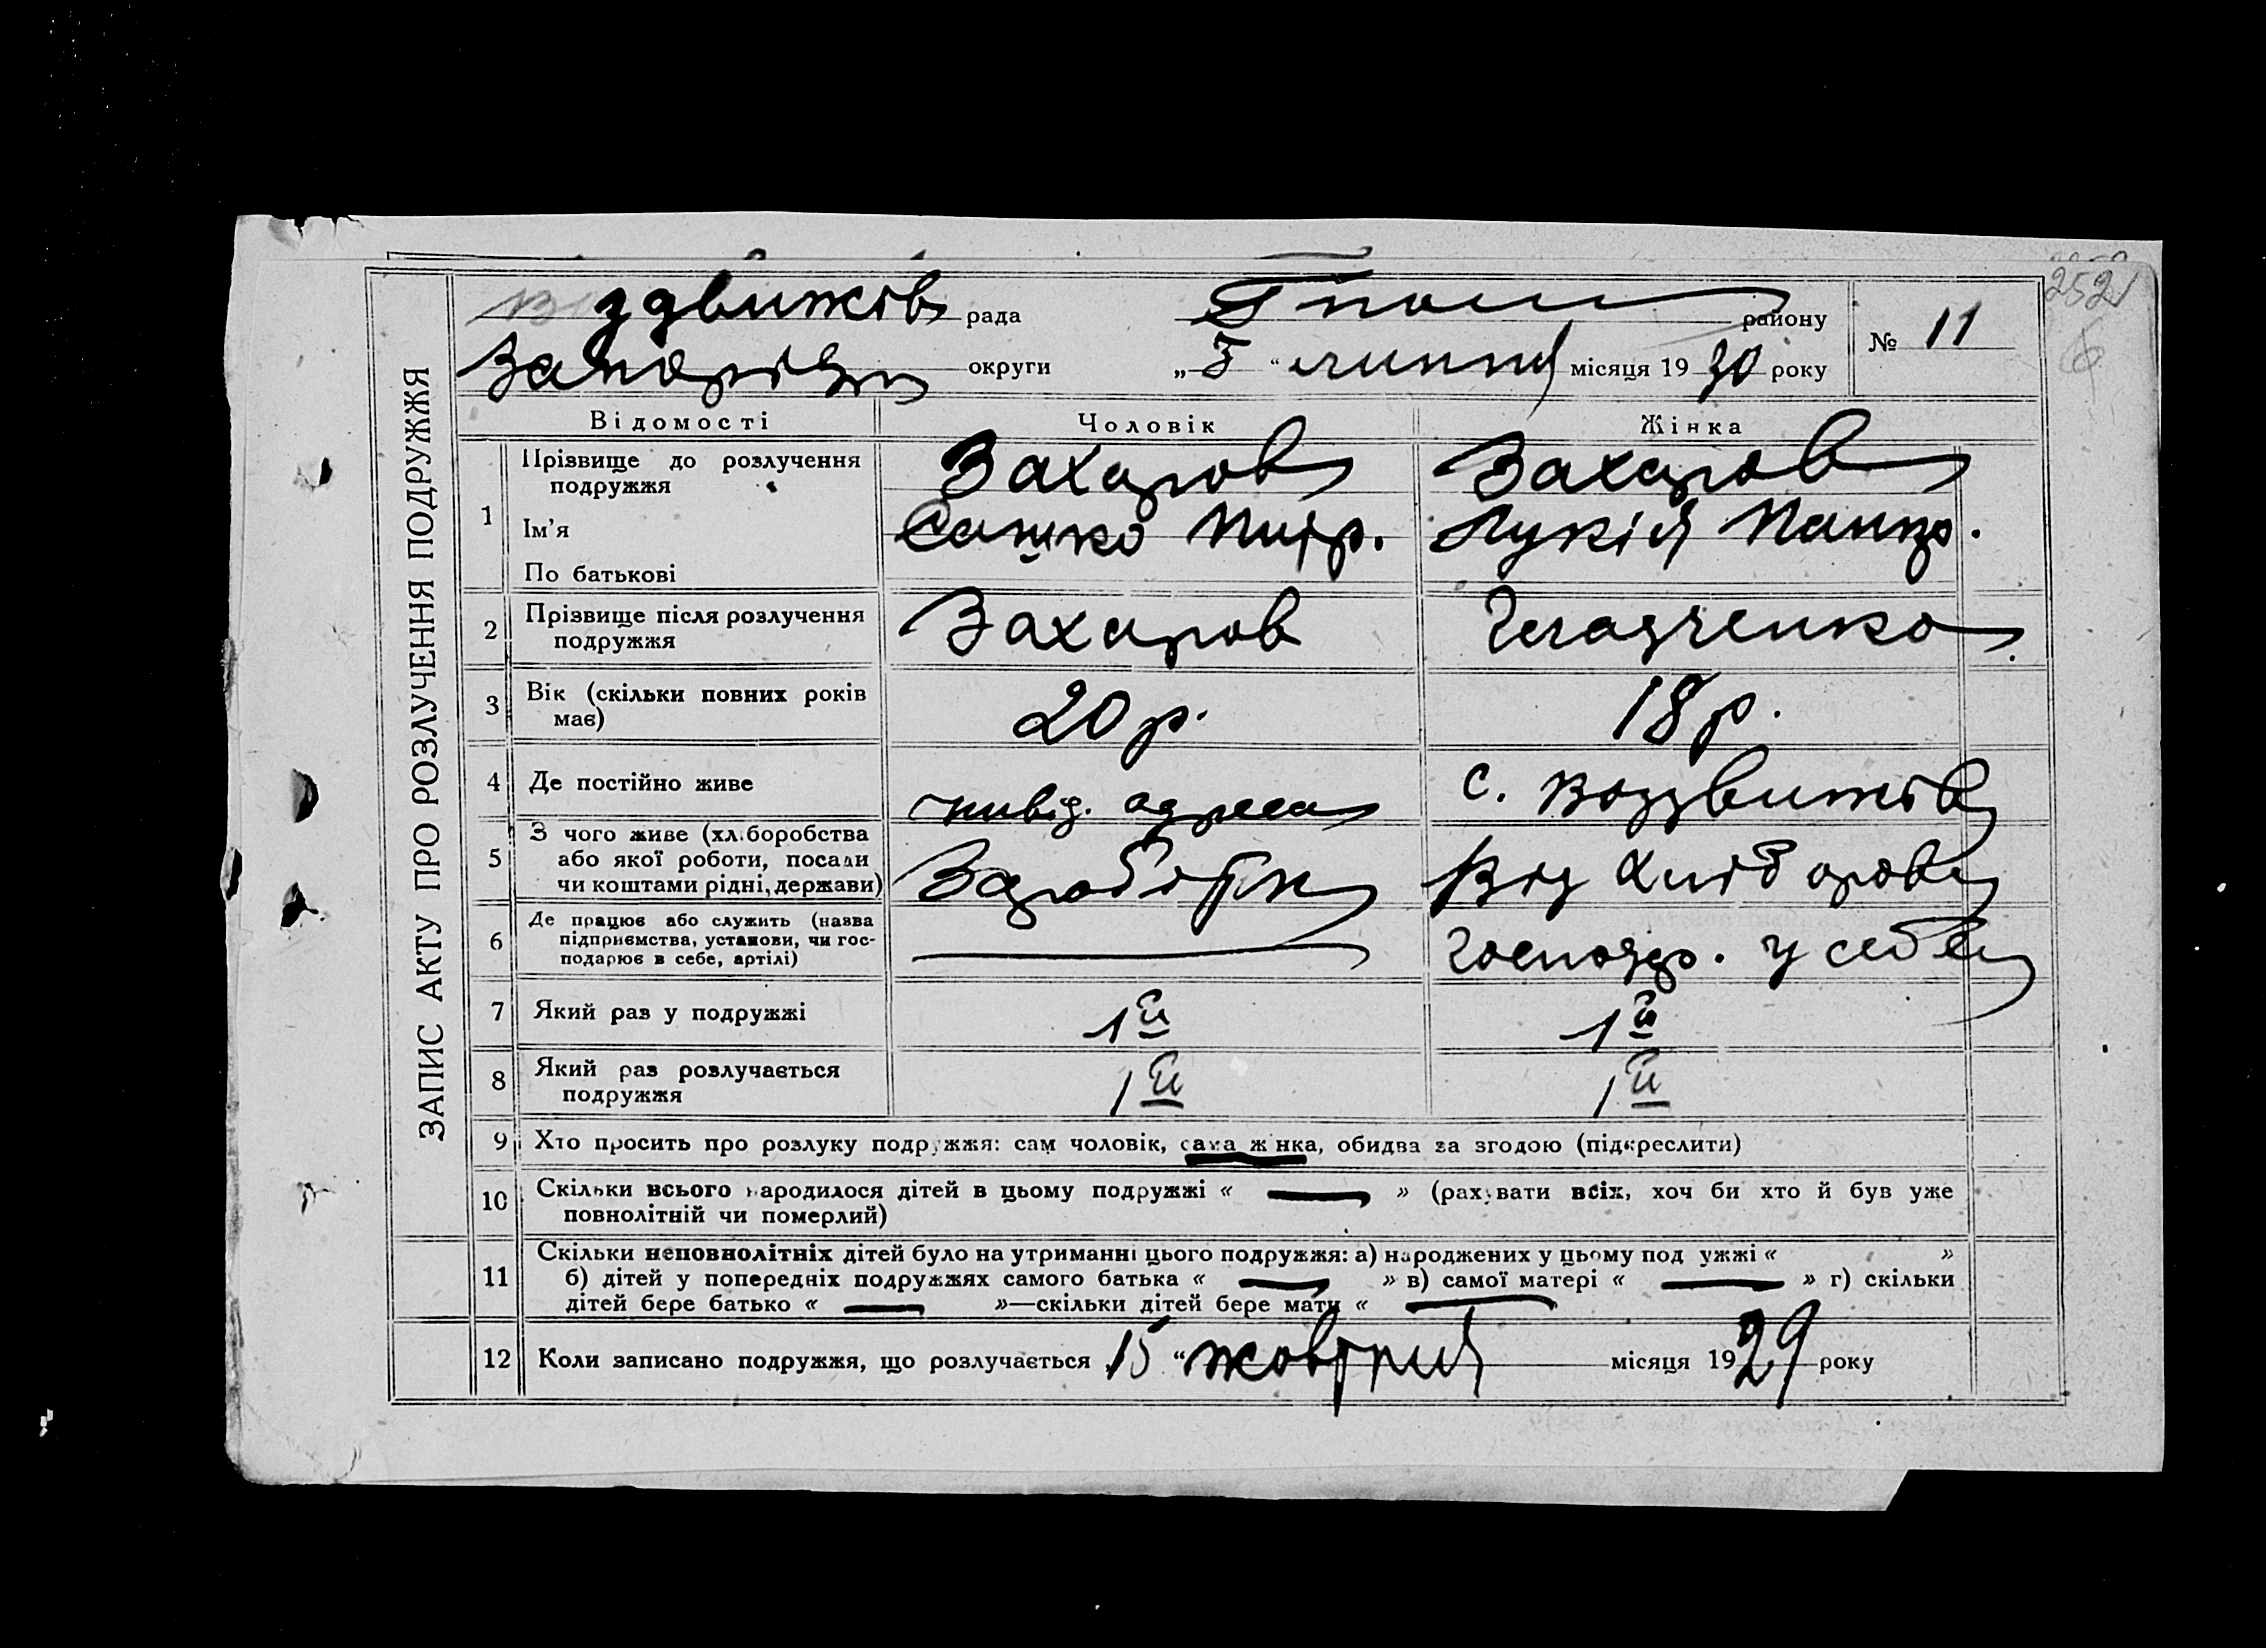 252
Воздвижів рада району № 11
Запорізьк округи „ 3 “ липня місяця 19 30 року
ЗАПИС АКТУ ПРО РОЗЛУЧЕННЯ ПОДРУЖЖЯ
Відомості Чоловік Жінка
1 Прізвище до розлучення подружжя Захаров Захаров
Ім'я Сашко Митр. Лукія
По батькові
2 Прізвище після розлучення подружжя Захаров Гладченко
3 Вік (скільки повних років має) 20 р. 18 р.
4 Де постійно живе невід. адреса с. Воздвижів
5 З чого живе (хліборобства або якої роботи, посади чи коштами рідні, держави) Заробітк Від хлібороб
6 Де працює або служить (назва підприємства, установи, чи господарює в себе, артілі) — господар. у себе
7 Який раз у подружжі 1й 1й
8 Який раз розлучається подружжя 1й 1й
9 Хто просить про розлуку подружжя: сам чоловік, сама жінка, обидва за згодою (підкреслити)
10 Скільки всього народилося дітей в цьому подружжі « — » (рахувати всіх, хоч би хто й був уже
повнолітній чи померлий)
11 Скільки неповнолітніх дітей було на утриманні цього подружжя: а) народжених у цьому подружжі « »
б) дітей у попередніх подружжях самого батька « — » в) самої матері « — » г) скільки
дітей бере батько « — »—скільки дітей бере мати « —
12 Коли записано подружжя, що розлучається 15 “ жовтня місяця 19 29 року